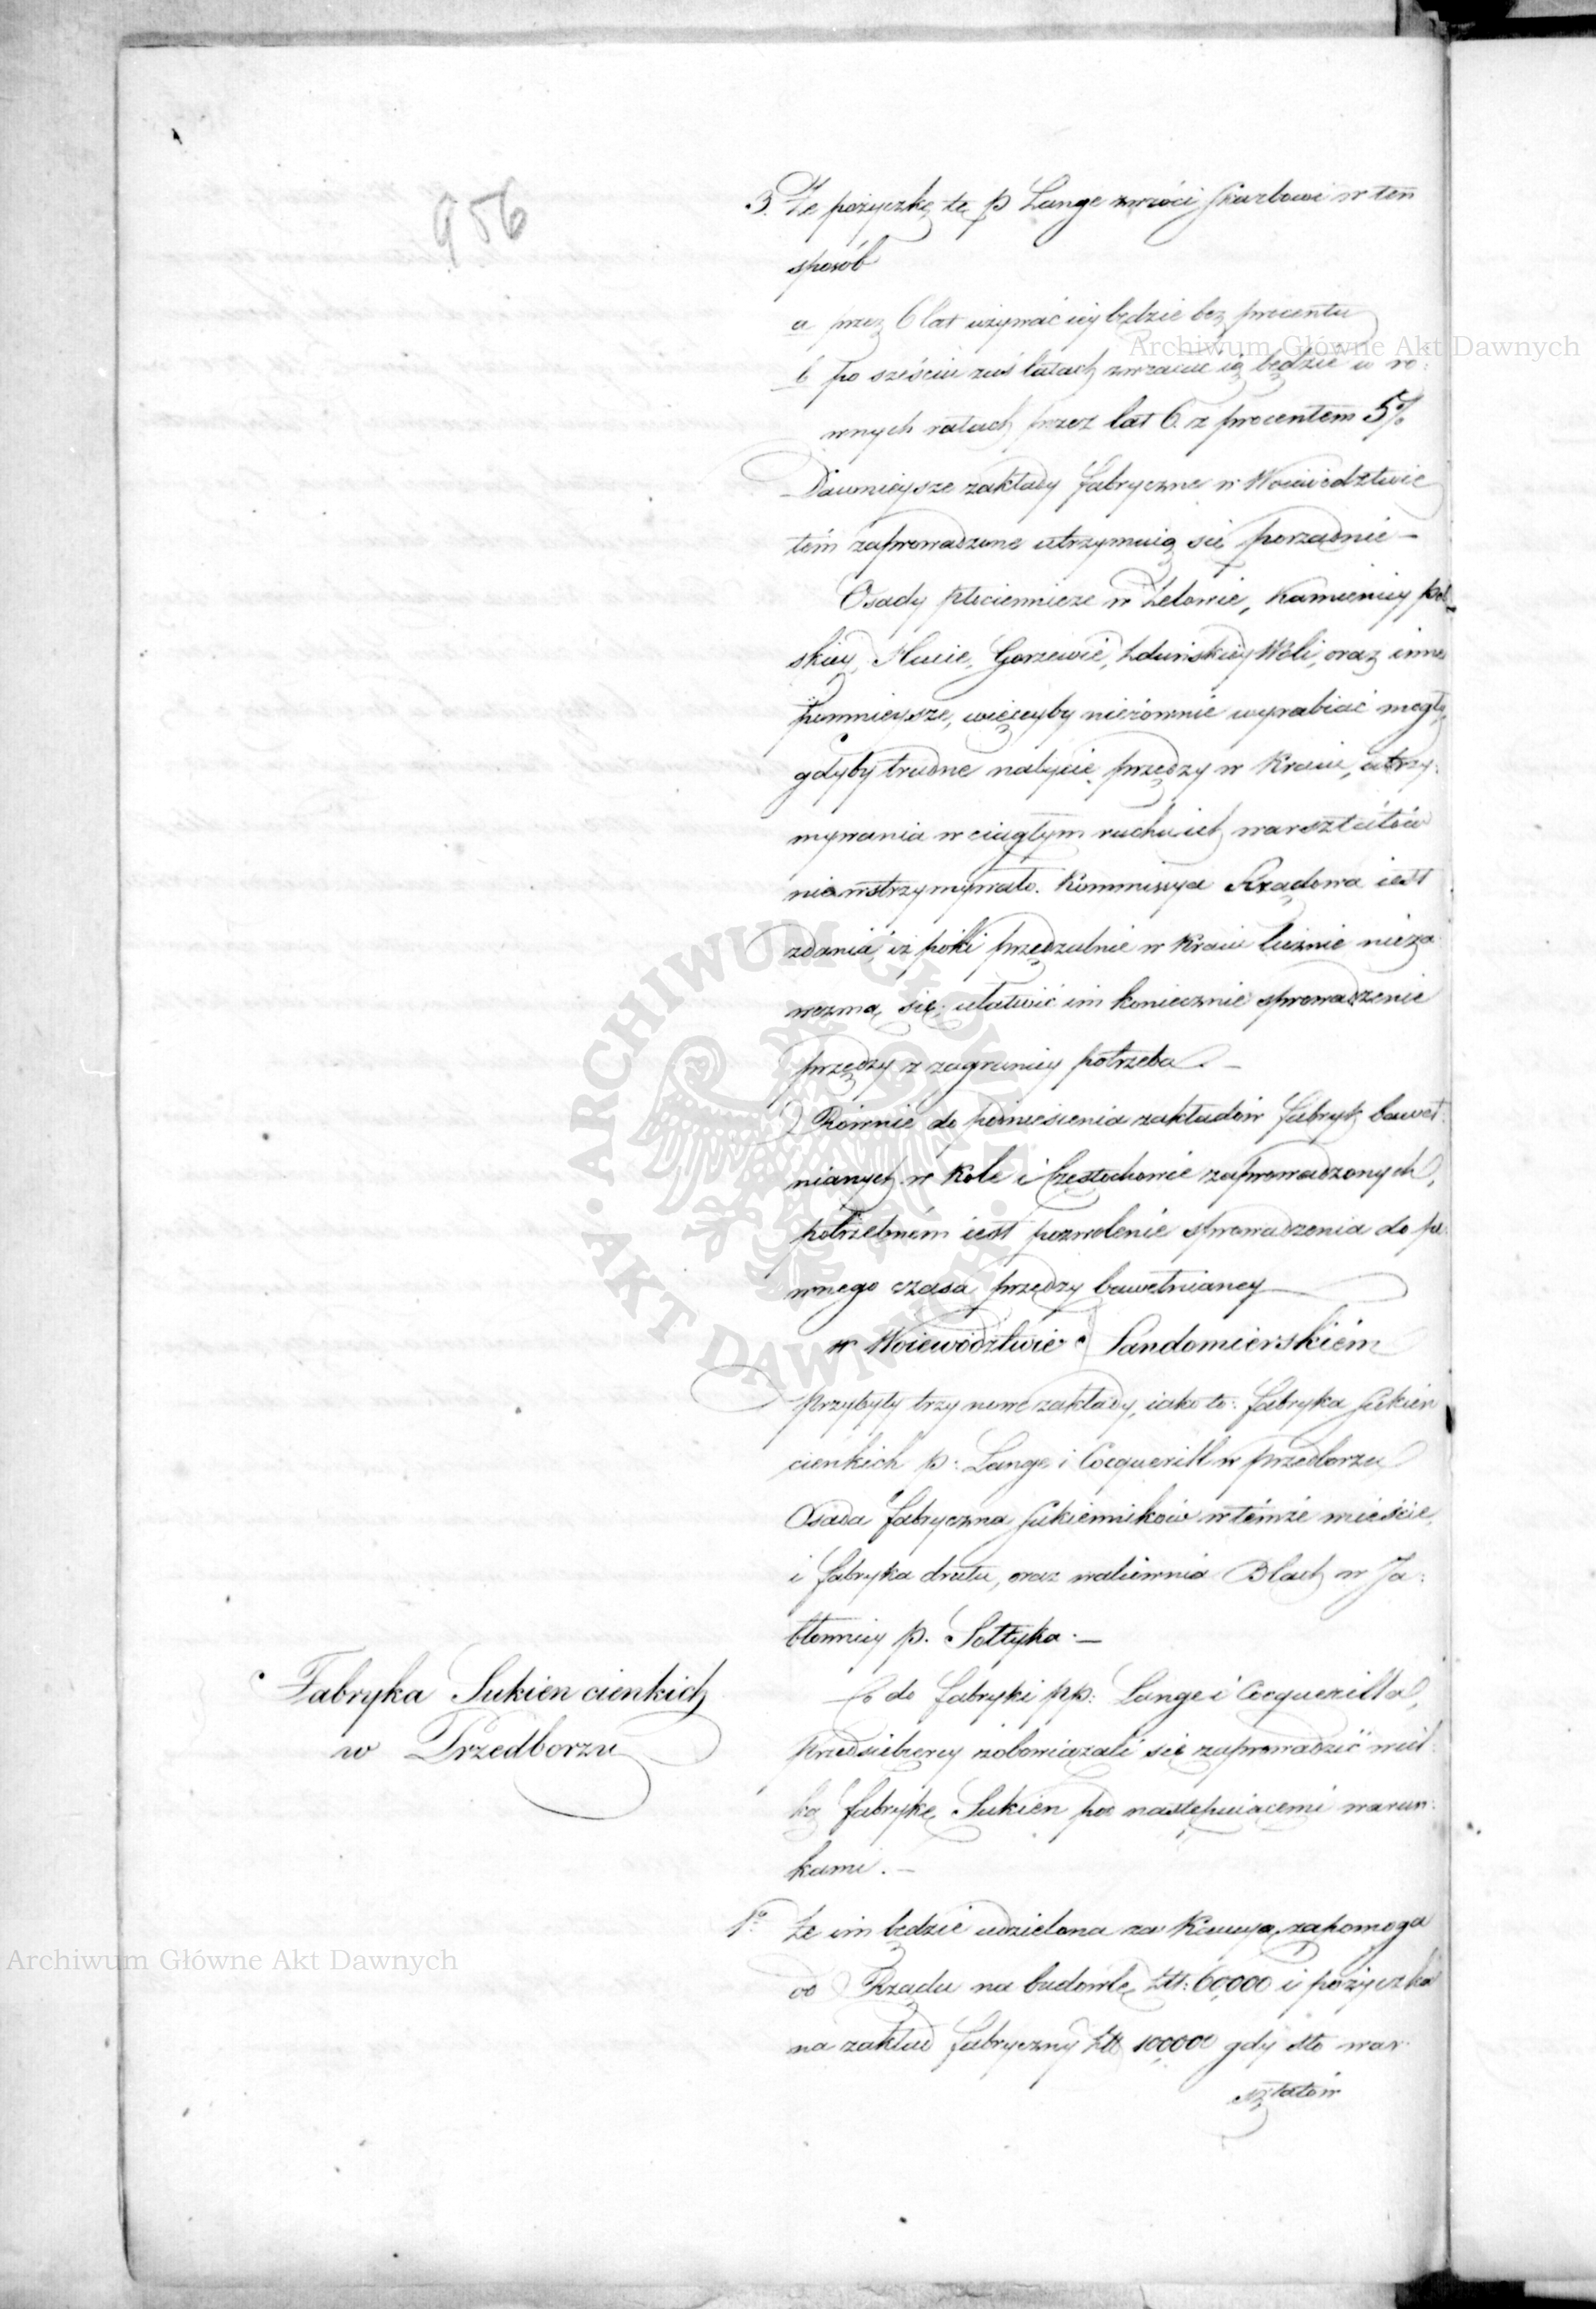 956
3. Że pożyczkę tę p Lange zwróci Skarbowi w ten
sposób
a przez 6 lat używać iey będzie bez procentu
b po sześciu zaś latach zwracać ią będzie w ró:
wnych ratach przez lat 6. z procentem 5%
Dawnieysze zakłady fabryczne w Woiewództwie
tém zaprowadzone utrzymuią się porządnie —
Osady płóciennicze w Zelowie, Kamienicy pol_
skiey, Hucie, Gorzewie, Zduńskiey Woli, oraz inne
pomnieysze, więceyby nierównie wyrabiać mogły,
gdyby trudne nabycie przędzy w Kraiu, utrzy:
mywania w ciągłym ruchu ich warsztatów
niewstrzymywało. Kommissya Rządowa iest
zdania, iż póki przędzalnie w Kraiu licznie nieza
wezmą się, ułatwić im koniecznie sprowadzenie
przędzy z zagranicy potrzeba. —
Równie do podniesienia zakładów fabryk baweł:
nianych w Kole i Częstochowie zaprowadzonych,
potrzebném iest pozwolenie sprowadzenia do pe:
wnego czasu przędzy bawełnianey
w Woiewództwie Sandomierskiém
przybyły trzy nowe zakłady, iako to: fabryka Sukien
cienkich p: Lange i Cocquerill w Przedborzu
Osada fabryczna Sukienników w témże mieście,
i fabryka drutu, oraz walcownia Blach w Ja:
błonnicy p. Sołtyka. —
Fabryka Sukien cienkich
w Przedborzu
Co do fabryki pp: Lange i Cocquerilla,
Przedsiębiercy zobowiązali się zaprowadzić wiel:
ką fabrykę Sukien pod następuiącemi warun:
kami. —
1o Że im będzie udzielona za Kaucyą zapomoga
od Rządu na budowlę Złł: 60,000 i pożyczka
na zakład fabryczny Złł 100,000 gdy sto war:
sztatów
Archiwum Główne Akt Dawnych
Archiwum Główne Akt Dawnych
ARCHIWUM GŁÓWNE AKT DAWNYCH